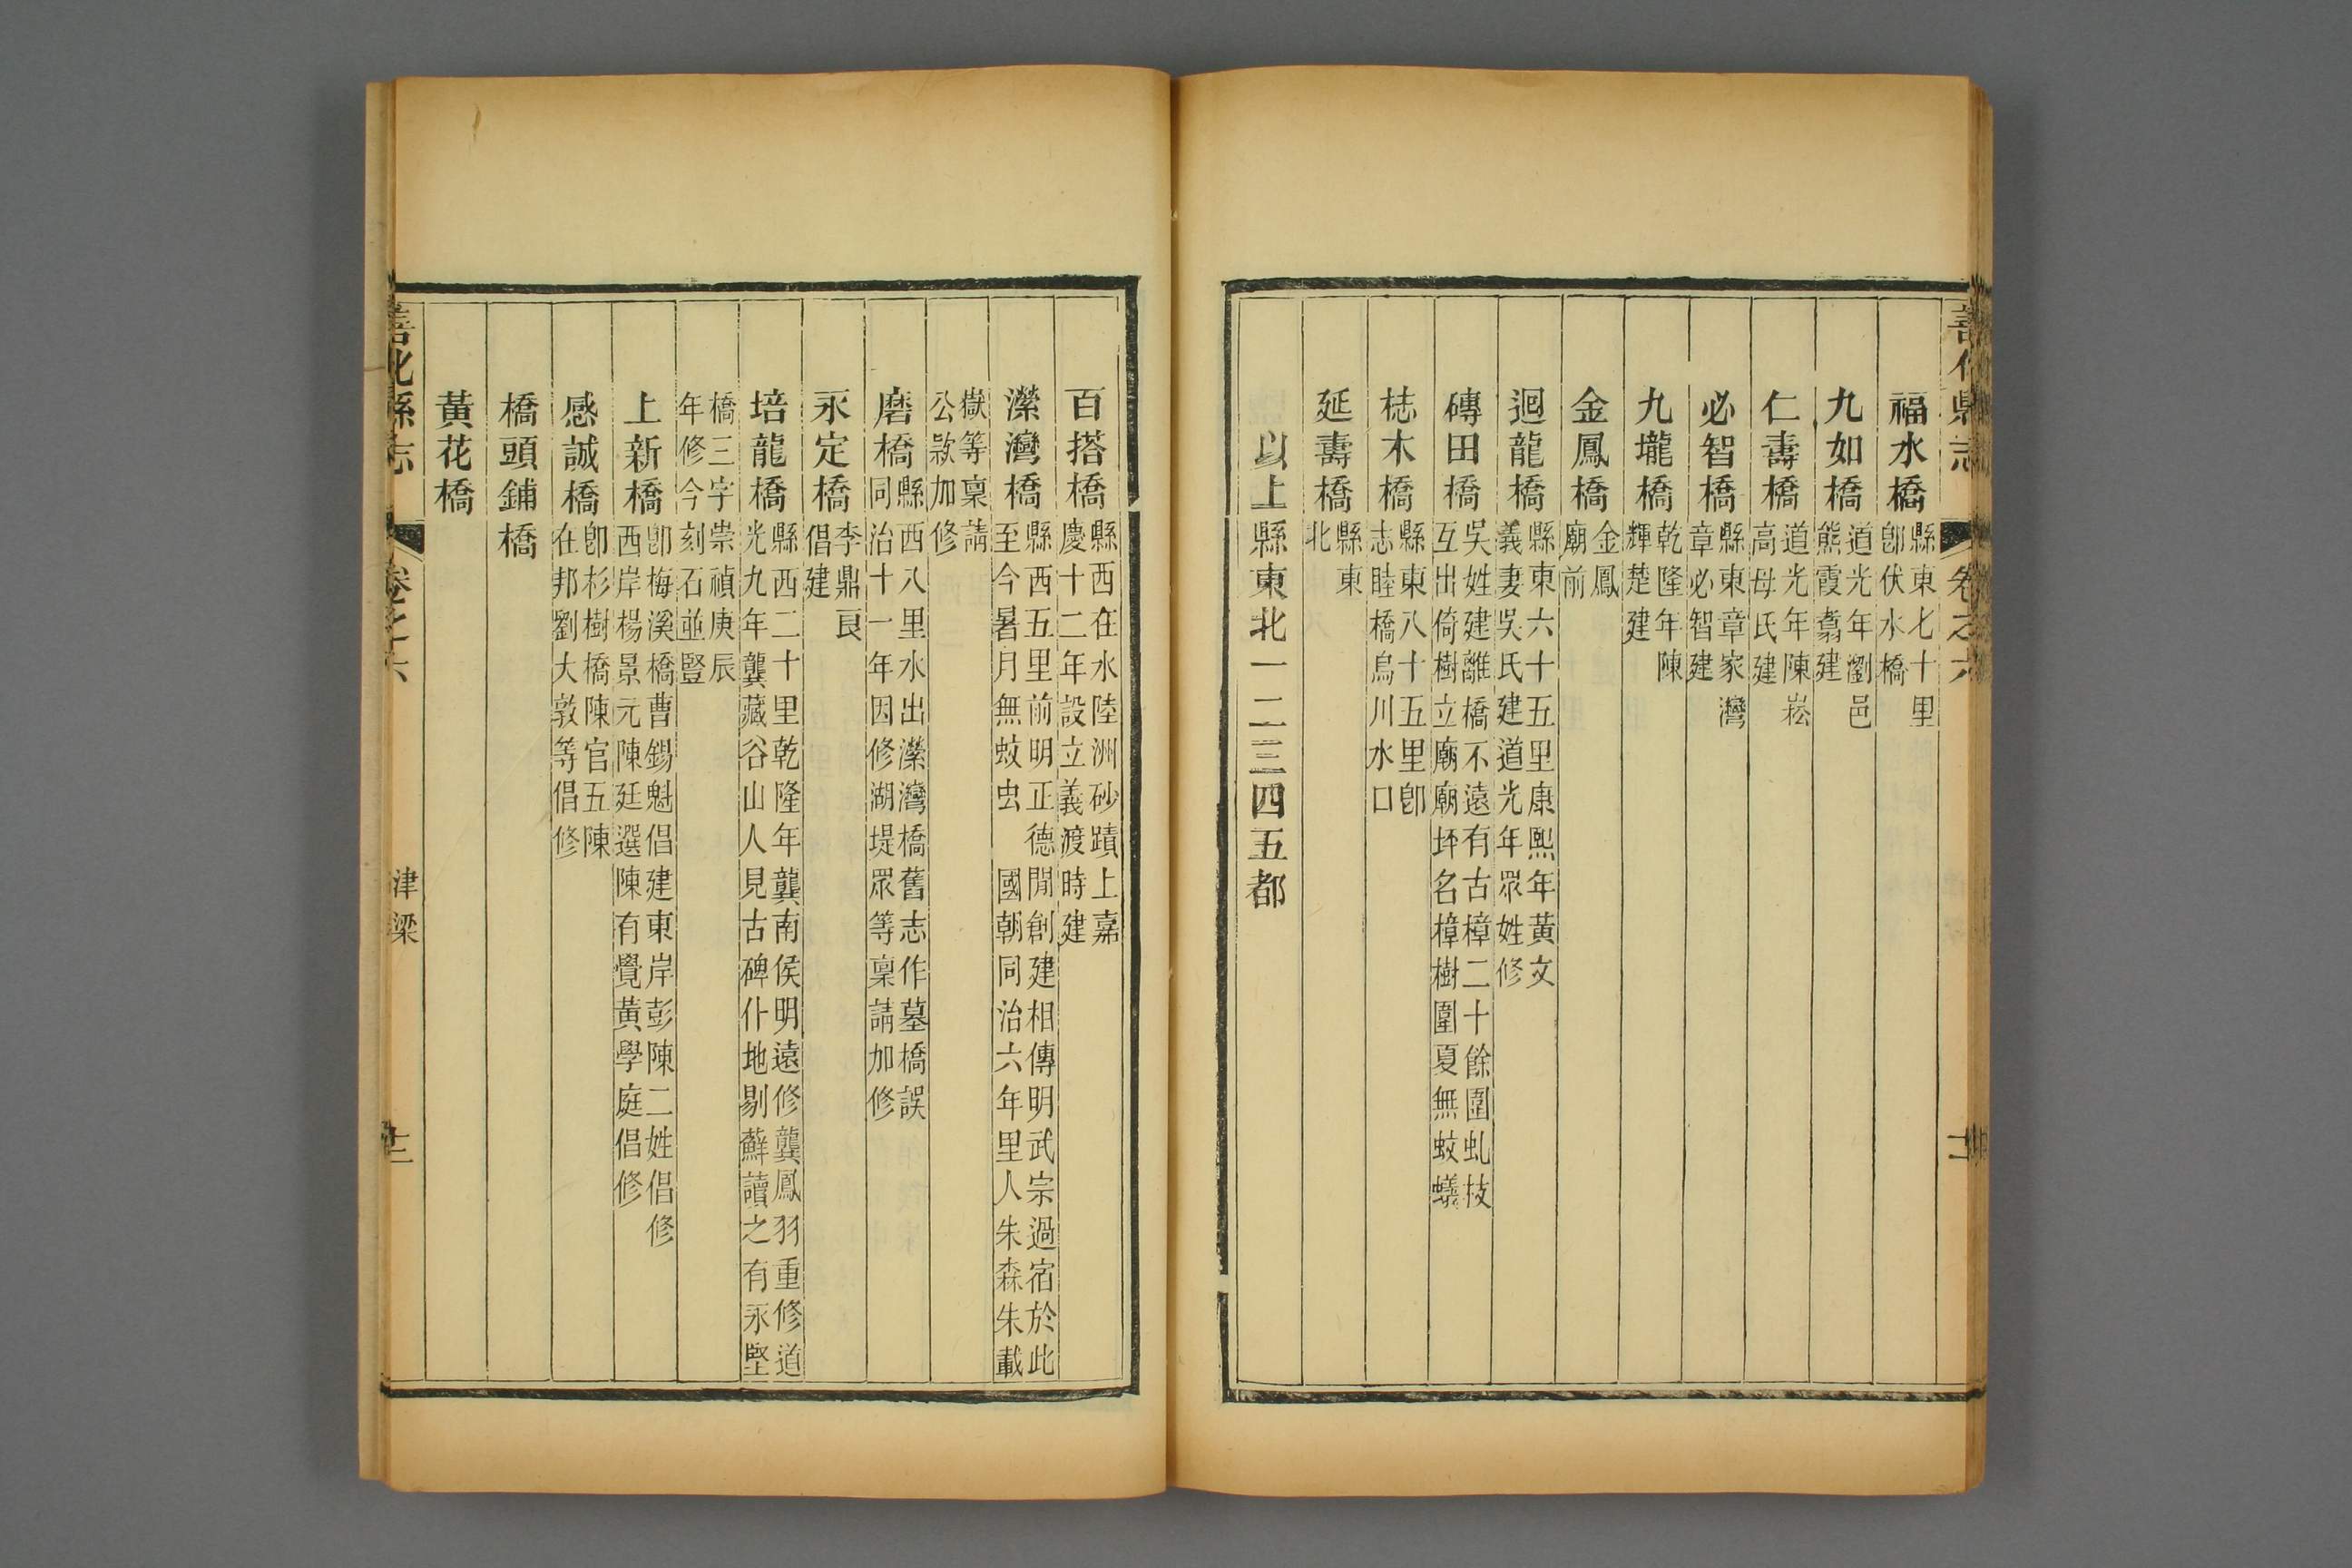 善化縣志
卷之六
福水橋 縣東七十里卽伏水橋
九如橋 道光年瀏邑熊霞翥建
仁壽橋 道光年陳崧高母氏建
必智橋 縣東章家灣章必智建
九壠橋 乾隆年陳輝楚建
金鳳橋 金鳳廟前
迴龍橋 縣東六十五里康熙年黃文義妻吳氏建道光年眾姓修
磚田橋 吳姓建離橋不遠有古樟二十餘圍虬枝互出倚樹立廟廟坪名樟樹圍夏無蚊蟻
梽木橋 縣東八十五里卽志睦橋烏川水口
延壽橋 縣東北
以上縣東北一二三四五都
百搭橋 縣西在水陸洲砂蹟上嘉慶十二年設立義渡時建
濚灣橋 縣西五里前明正德閒創建相傳明武宗過宿於此至今暑月無蚊虫 國朝同治六年里人朱森朱載
嶽等稟請公款加修
磨橋 縣西八里水出濚灣橋舊志作墓橋誤同治十一年因修湖堤眾等稟請加修
永定橋 李鼎良倡建
培龍橋 縣西二十里乾隆年龔南侯明遠修龔鳳羽重修道光九年龔藏谷山人見古碑仆地剔蘚讀之有永堅
橋三字崇禎庚辰年修今刻石並豎
上新橋 卽梅溪橋曹錫魁倡建東岸彭陳二姓倡修西岸楊景元陳廷選陳有覺黃學庭倡修
感誠橋 卽杉樹橋陳官五陳在邦劉大敦等倡修
橋頭鋪橋
黃花橋
善化縣志
卷之六
津梁
十二